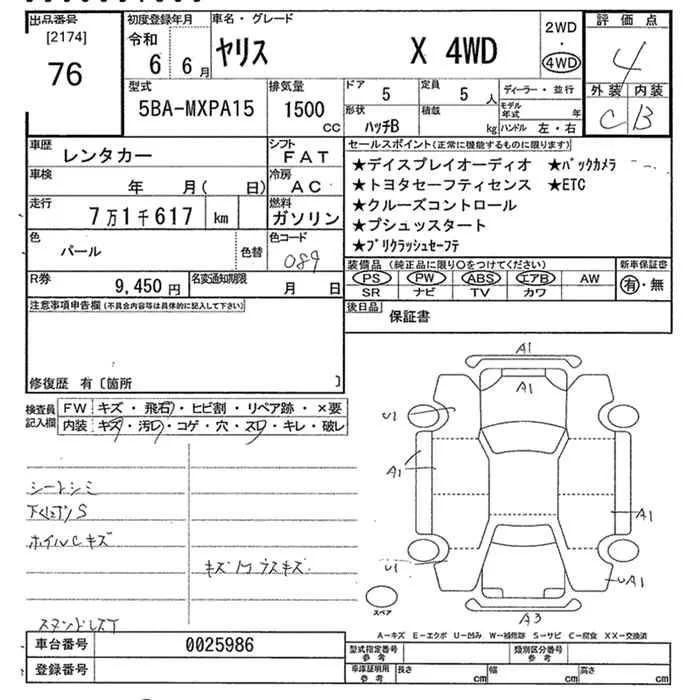 出品番号
[2174]
76
初度登録年月
令和
6 6月
車名・グレード
ヤリス X 4WD
2WD
・
4WD
評価点
4
外装 内装
C B
型式
5BA-MXPA15
排気量
1500
CC
ドア
5
定員
5 人
形状
ハッチB
積載
kg
ディーラー・並行
モデル年式 年
ハンドル 左・右
車歴
レンタカー
シフト
FAT
車検
年 月( 日)
冷房
AC
走行
7万1千617 km
燃料
ガソリン
色
パール
色替
色コード
089
R券
9,450 円
名変通知期限
月 日
セールスポイント(正常に機能するものに限ります)
★デイスプレイオーディオ ★バックカメラ
★トヨタセーフティセンス ★ETC
★クルーズコントロール
★プシュッスタート
★プリクラッシュセーフテ
装備品 (純正品に限り○をつけてください)
PS PW ABS エアB AW
SR ナビ TV カワ
新車保証書
有・無
後日品
保証書
注意事項申告欄(不具合内容等は具体的に記入して下さい)
修復歴 有〔箇所 〕
検査員記入欄
FW キズ・飛石・ヒビ割・リペア跡・×要
内装 キズ・汚れ・コゲ・穴・スレ・キレ・破レ
シートシミ
S
ホイルCキズ
キズ
A1
A1
U1
A1
A1
U1
UA1
A3
スペア
A-キズ E-エクボ U-凹み W-補修跡 S-サビ C-腐食 XX-交換済
車台番号
0025986
登録番号
型式指定番号
参考
類別区分番号
参考
車庫証明用
参考
長さ cm
幅 cm
高さ cm